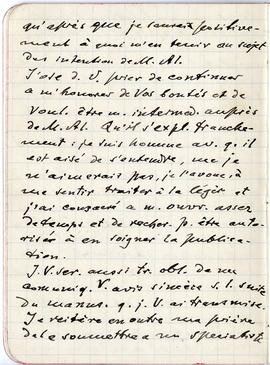 qu'après que je saurais positive-
ment à quoi m'en tenir au sujet
des intention de M. Al.
J'ose d. V. prier de continuer
a m'honorer de Vos bontés et de
Voul. être m. intermed. auprès
de M. Al. Qu'il s'expl. franche-
ment: je suis homme av. q. il
est aisé de s'entendre, me je
n'aimerais pas, je l'avoue, à
me sentir traiter à la légèr et
j'ai consacré a m. ouvr. assez
de temps et de recher. p. être auto-
risér à en soigner la publica-
tion.
J. V. ser. aussi tr. obl. de me
comuniq. V. avis sincère s. l. suite
du manus. q. j. V. ai transmise.
Je reitère en outre ma prière
de le soumettre a un spécialist